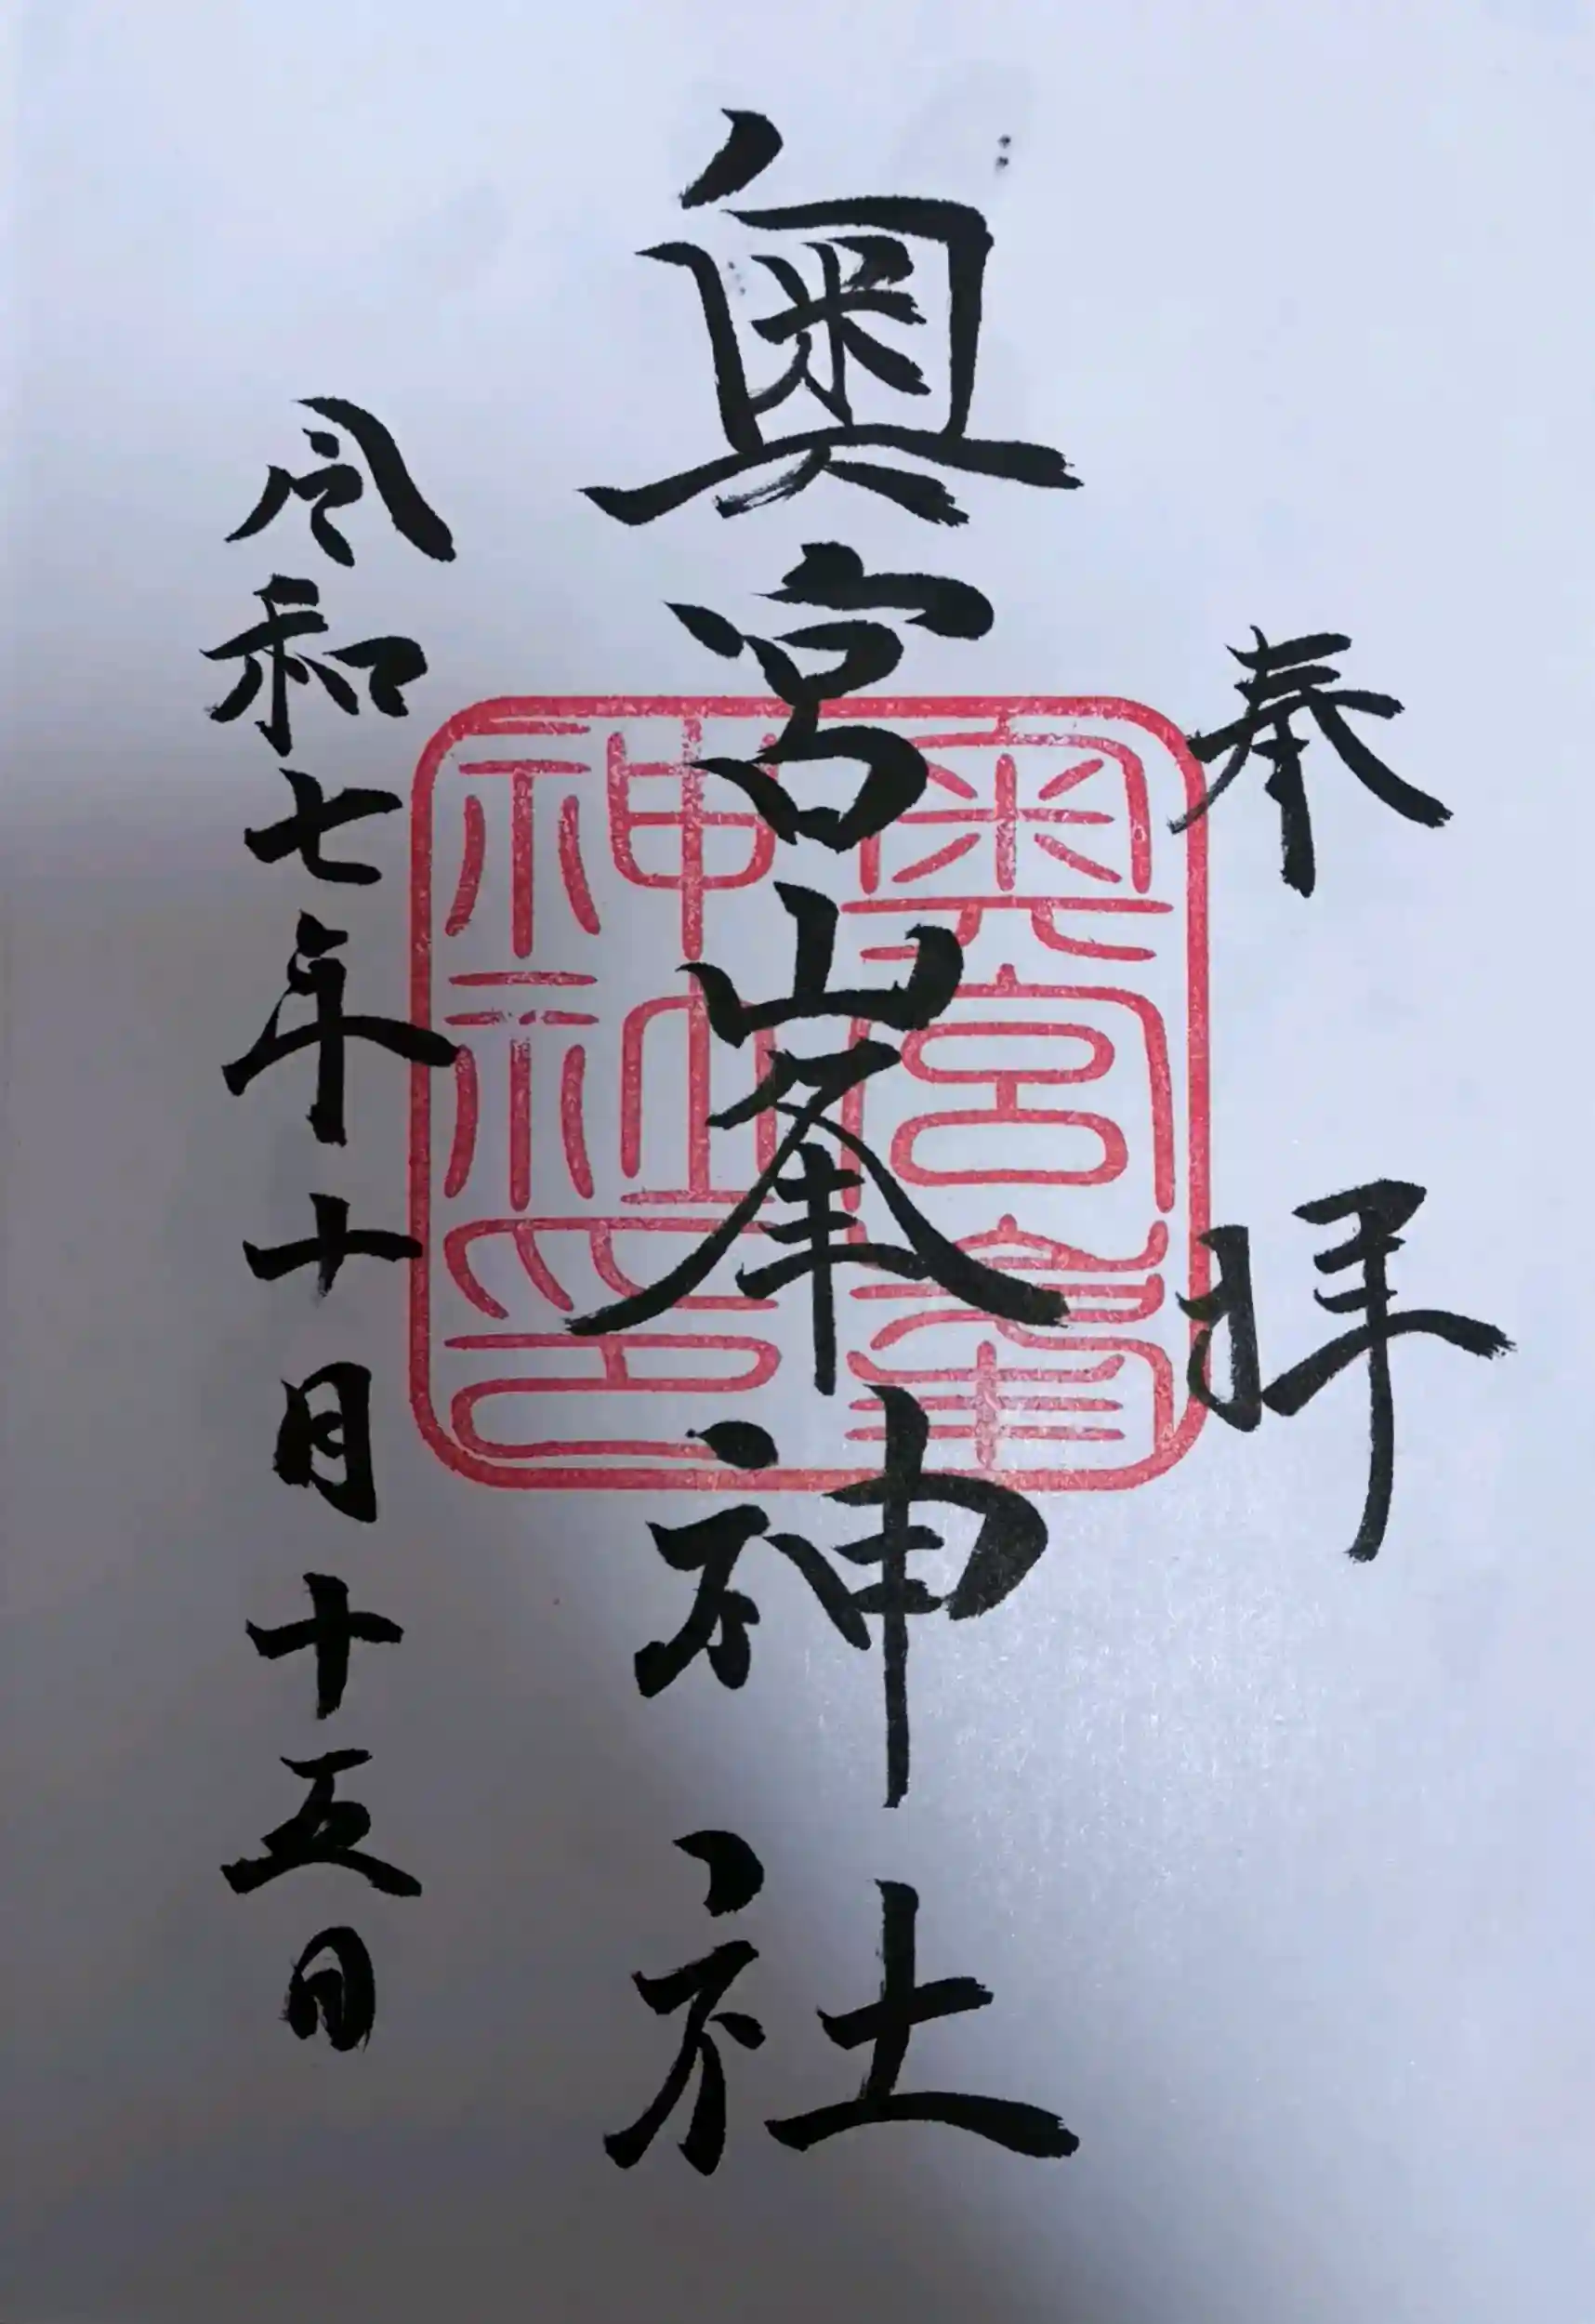 奉拝
奥宮峯神社
奥宮峯
神社印
令和七年十月十五日